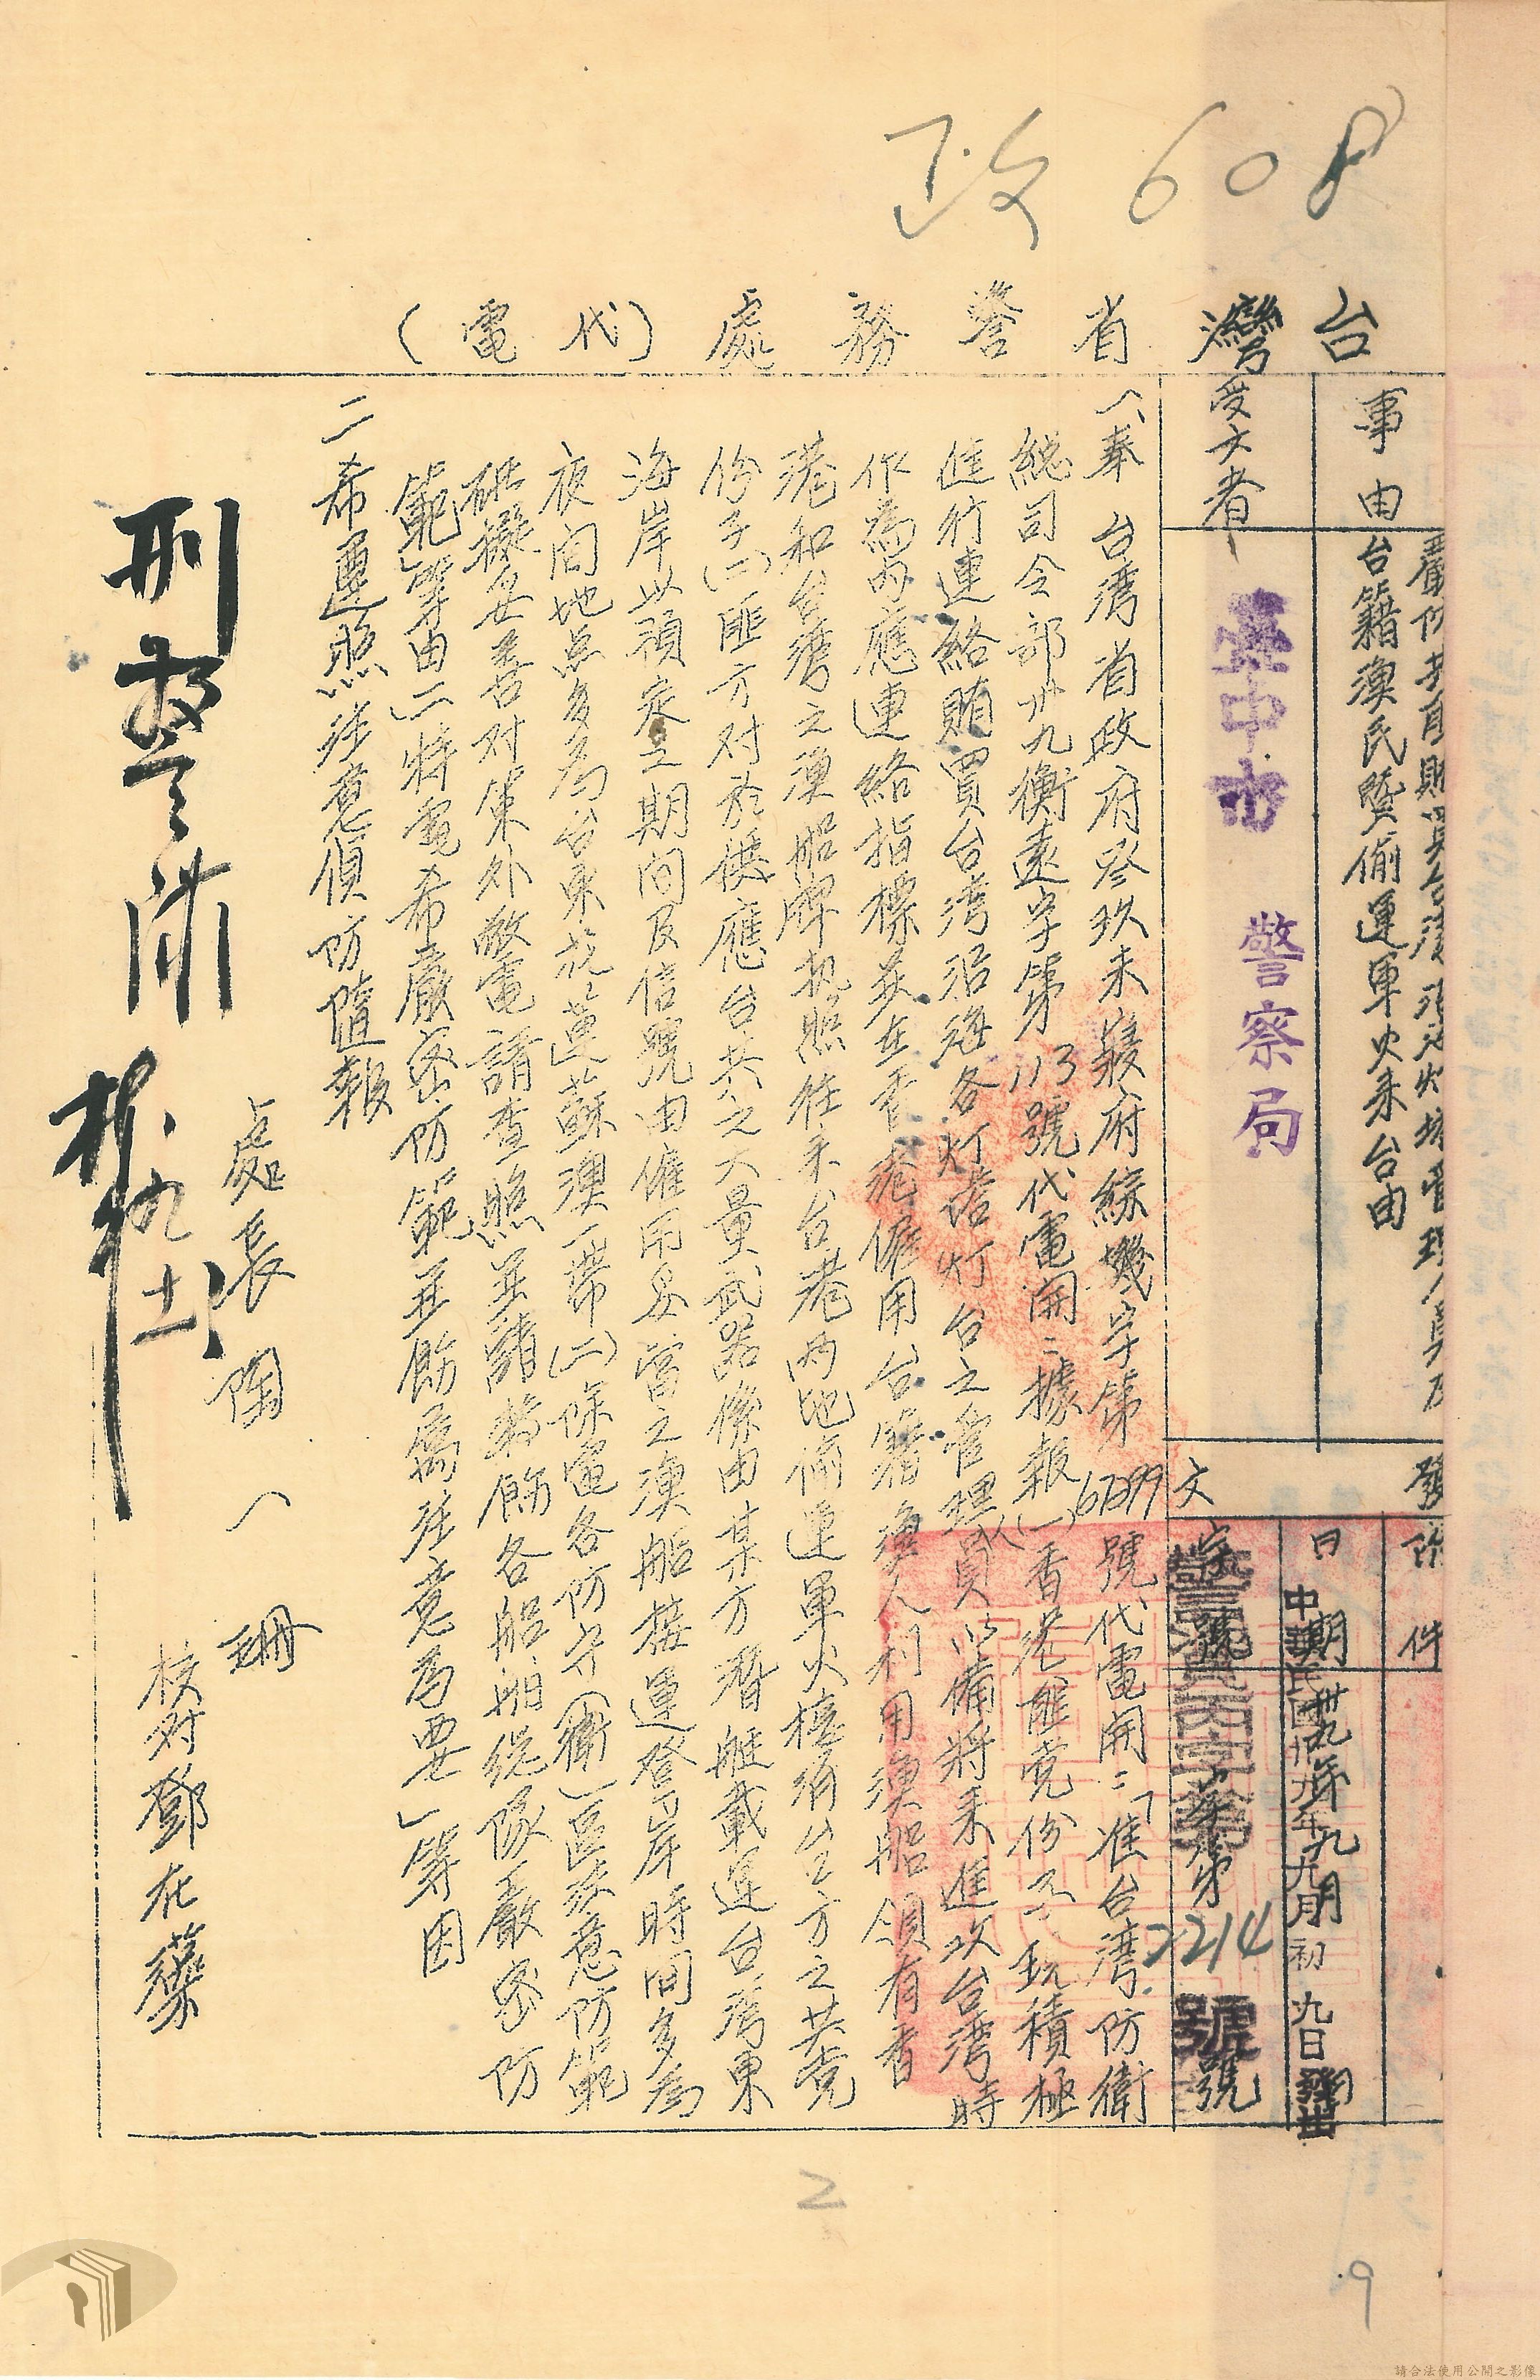 政608
台灣省警務處(代電)
事由
嚴防共匪賄買台灣沿海灯塔管理人員及
台籍漁民暨偷運軍火來台由
受文者
臺中市 警察局
附件
發文
日期
中華民國卅九年九月初九日發出
卅九年九月 日
字號
字第2214號
一、奉 台湾省政府 未 府綜機字第67399號代電開:「准台湾防衛
總司令部卅九衡遠字第113號代電開:據報(一)香港匪党份子、現積極
進行連絡賄買台湾沿海各灯塔灯台之管理人員以備將來進攻台湾時
作為内應連絡指標並在香港僱用台籍漁人利用漁船領有香
港和台湾之漁船牌執照往来台港两地偷運軍火接濟台方之共党
份子(二)匪方对於供應台共之大量武器係由某方潛艇載運台湾東
海岸以預定之期间及信號由僱用妥當之漁船接運登岸時间多為
夜间地点多为台東花蓮蘇澳一帶(二)除電各防守(衛)區注意防範
研擬妥善对策外敬電請查照並請轉飭各船舶總隊嚴密防
範」等由二特電希嚴密防範並飭屬注意為要」等因
二希遵照注意偵防隨報
處長 陶一珊
校对鄧在
刑警隊
九 十一
2
9
請合法使用公開之影像